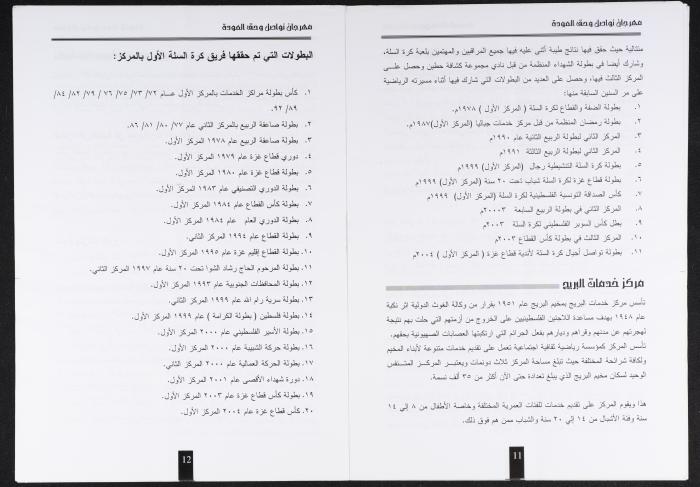 مهرجان تواصل وحق العودة
متتالية حيث حقق فيها نتائج طيبة أثنى عليه فيها جميع المراقبين والمهتمين بلعبة كرة السلة،
وشارك أيضا في بطولة الشهداء المنظمة من قبل نادي مجموعة كشافة حطين وحصل على
المركز الثالث فيها، وحصل على العديد من البطولات التي شارك فيها أثناء مسيرته الرياضية
على مر السنين السابقة منها:
١. بطولة الضفة والقطاع لكرة السلة ( المركز الأول ) ١٩٧٨م.
٢. بطولة رمضان المنظمة من قبل مركز خدمات جباليا (المركز الأول)١٩٨٧م.
٣. المركز الثاني لبطولة الربيع الثانية عام ١٩٩٠م
٤. المركز الثاني لبطولة الربيع الثالثة ١٩٩١م
٥. بطولة كرة السلة التنشيطية رجال (المركز الأول) ١٩٩٩م
٦. بطولة قطاع غزة لكرة السلة شباب تحت ٢٠ سنة (المركز الأول) ١٩٩٩م
٧. كأس الصداقة التونسية الفلسطينية لكرة السلة (المركز الأول) ١٩٩٩م
٨. المركز الثاني في بطولة الربيع السابعة ٢٠٠٠٣م
٩. بطل كأس السوبر الفلسطيني لكرة السلة ٢٠٠٣م
١٠. المركز الثالث في بطولة كأس القطاع ٢٠٠٣م
١١. بطولة تواصل أجيال كرة السلة لأندية قطاع غزة ( المركز الأول ) ٢٠٠٤م
مركز خدمات البريج
تأسس مركز خدمات البريج بمخيم البريج عام ١٩٥١ بقرار من وكالة الغوث الدولية اثر نكبة
عام ١٩٤٨ بهدف مساعدة اللاجئين الفلسطينيين على الخروج من أزمتهم التي حلت بهم نتيجة
لهجرتهم عن مدنهم وقراهم وديارهم بفعل الجرائم التي ارتكبتها العصابات الصهيونية بحقهم.
تأسس المركز كمؤسسة رياضية ثقافية اجتماعية تعمل على تقديم خدمات متنوعة لأبناء المخيم
ولكافة شرائحه المختلفة حيث تبلغ مساحة المركز ثلاث دونمات ويعتبر المركز المتنفس
الوحيد لسكان مخيم البريج الذي يبلغ تعدادة حتى الآن أكثر من ٣٥ ألف نسمة.
هذا ويقوم المركز على تقديم خدمات للفئات العمرية المختلفة وخاصة الأطفال من ٨ إلى ١٤
سنة وفئة الأشبال من ١٤ إلى ٢٠ سنة والشباب ممن هم فوق ذلك.
11
مهرجان تواصل وحق العودة
البطولات التي تم حققها فريق كرة السلة الأول بالمركز:
١. كأس بطولة مراكز الخدمات بالمركز الأول عام ٧٢/ ٧٣/ ٧٥/ ٧٦/ ٧٩/ ٨٢/ ٨٤/
٨٩/ ٩٢.
٢. بطولة صاعقة الربيع بالمركز الثاني عام ٧٧/ ٨٠/ ٨١/ ٨٦.
٣. بطولة صاعقة الربيع عام ١٩٧٨ المركز الأول.
٤. دوري قطاع غزة عام ١٩٧٩ المركز الأول.
٥. بطولة قطاع غزة عام ١٩٨٠ المركز الأول.
٦. بطولة الدوري التصنيفي عام ١٩٨٣ المركز الأول.
٧. بطولة كأس القطاع عام ١٩٨٤ المركز الأول.
٨. بطولة الدوري العام عام ١٩٨٤ المركز الأول.
٩. بطولة القطاع عام ١٩٩٤ المركز الثاني.
١٠. بطولة القطاع إقليم غزة عام ١٩٩٥ المركز الأول.
١١. بطولة المرحوم الحاج رشاد الشوا تحت ٢٠ سنة عام ١٩٩٧ المركز الثاني.
١٢. بطولة المحافظات الجنوبية عام ١٩٩٣ المركز الأول.
١٣. بطولة سرية رام الله عام ١٩٩٩ المركز الثاني.
١٤. بطولة فلسطين ( بطولة الكرامة ) عام ١٩٩٩ المركز الأول.
١٥. بطولة الأسير الفلسطيني عام ٢٠٠٠ المركز الأول.
١٦. بطولة حركة الشبيبة عام ٢٠٠٠ المركز الأول.
١٧. بطولة الحركة العمالية عام ٢٠٠٠ المركز الثاني.
١٨. دورة شهداء الأقصى عام ٢٠٠١ المركز الأول.
١٩. بطولة كأس غزة عام ٢٠٠٣ المركز الأول.
٢٠. كأس قطاع غزة عام ٢٠٠٤ المركز الأول.
12